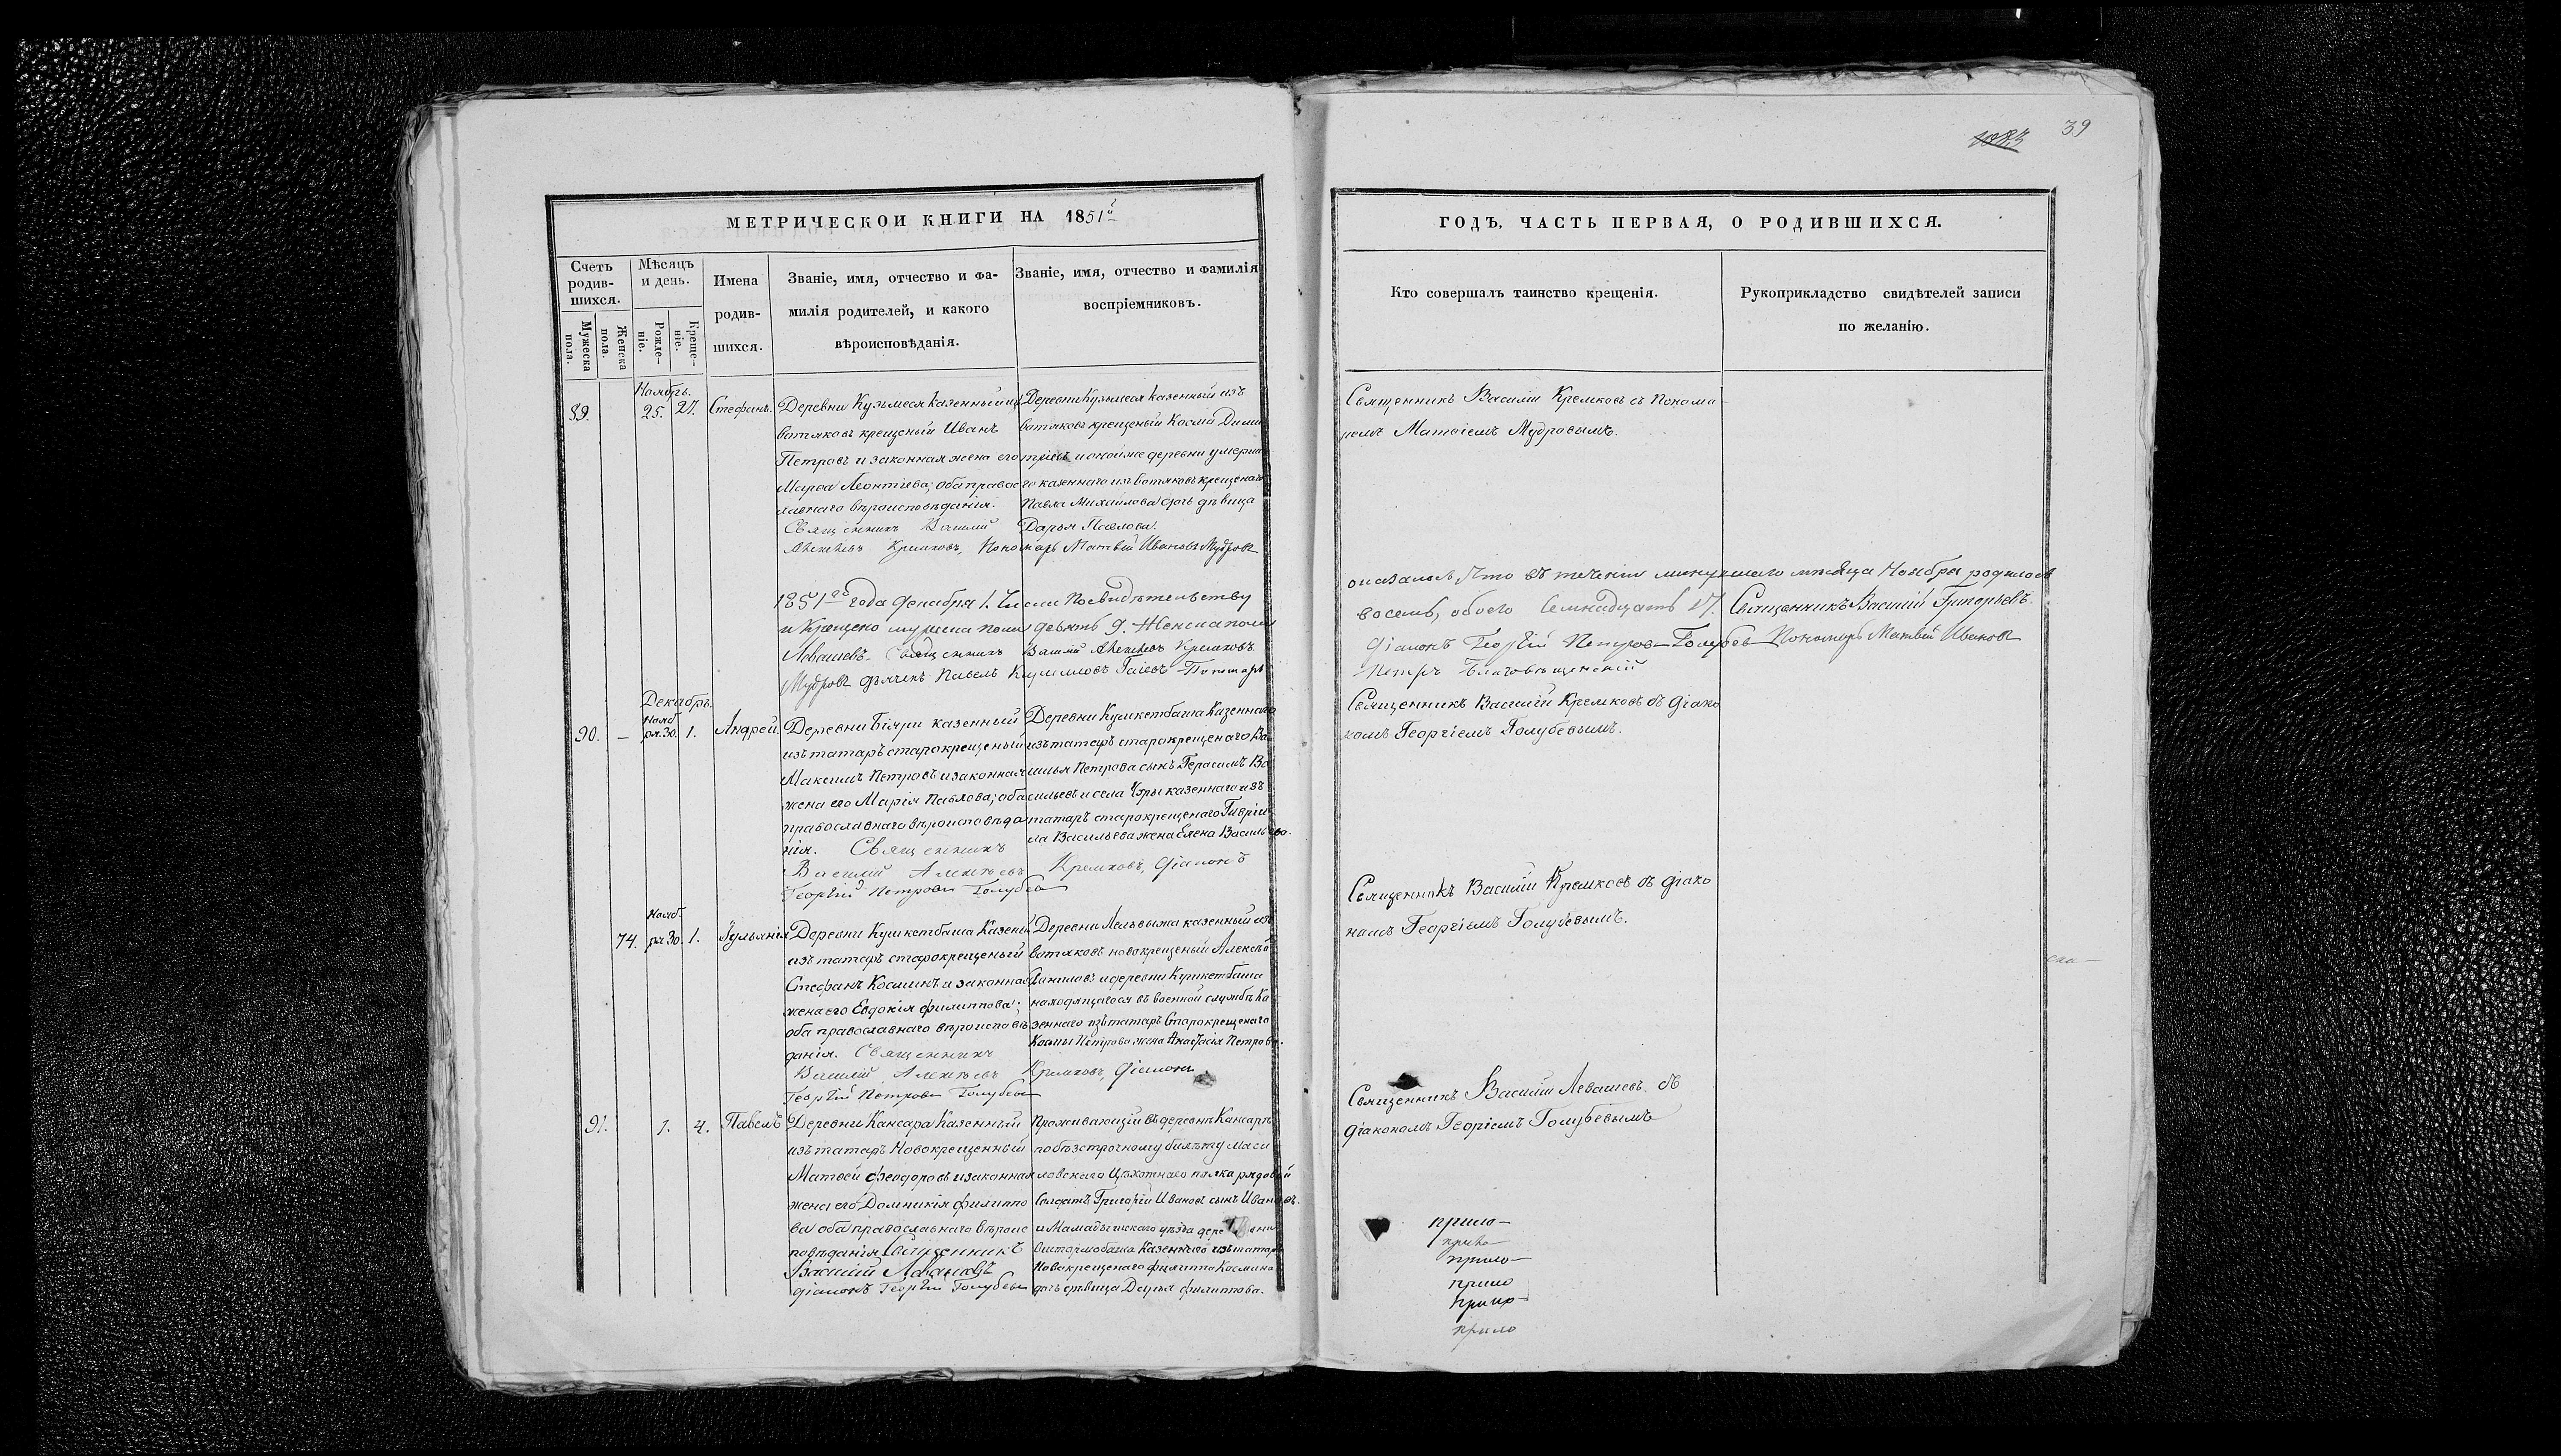 39
МЕТРИЧЕСКОЙ КНИГИ НА 1851й
Счетъ родив-шихся.
Мужеска пола.
Женска пола.
Мѣсяцъ и день.
Рожде-ніе.
Креще-ніе.
Имена родив-шихся.
Званіе, имя, отчество и фа-
милія родителей, и какого
вѣроисповѣданія.
Званіе, имя, отчество и фамилія
воспріемниковъ.
Ноябрь.
89. 25. 27. Стефанъ.
Деревни Кузьмеся казенный изъ
вотяковъ крещеный Иванъ
Петровъ и законная жена его
Марѳа Леонтіева; оба правос
лавнаго вѣроисповѣданія.
Деревни Кузьмеся казенный изъ
вотяковъ крещеный Косма Дими
тріевъ и оной же деревни умерша
го казеннаго изъ вотяковъ крещенаго
Павла Михайлова дочь дѣвица
Дарья Павлова.
Священникъ Василій
Алексѣевъ Кремковъ, Пономарь Матвѣй Ивановъ Мудровъ
1851го года Декабря 1. Числа По свидѣтельству
и Крещено мужеска пола девять 9. Женска пола
Левашевъ. Священникъ Василій Алексѣевъ Кремковъ
Мудровъ дьячекъ Павелъ Гаіевъ Пономарь
Декабрь.
90. — Нояб ря 30. 1. Андрей.
Деревни Біяри казенный
изъ татаръ старокрещеный
Максимъ Петровъ и законная
жена его Марія Павлова; оба
православнаго вѣроисповѣда
нія. Священникъ
Деревни Кушкетбаша Казеннаго
изъ татаръ старокрещенаго Ва
силья Петрова сынъ Герасимъ Ва
сильевъ и села Чуры казеннаго изъ
татаръ старокрещенаго Гавріи
ла Васильева жена Елена Васильева.
Василій Алексѣевъ Кремковъ, Діаконъ
Георгій Петровъ Голубевъ
74. Нояб ря 30. 1. Іульянія
Деревни Кушкетбаша Казены
изъ татаръ старокрещеный
Стефанъ Косминъ и законная
жена его Евдокія Филиппова;
оба православнаго вѣроисповѣ
данія. Священникъ
Деревни Лельвыжа казенный изъ
вотяковъ новокрещеный Алексѣй
Даниловъ и деревни Кушкетбаша
находящагося въ военной службѣ Ка
зеннаго изъ татаръ Старокрещенаго
Космы Петрова жена Анастасія Петрова.
Василій Алексѣевъ Кремковъ, Діаконъ
Георгій Петровъ Голубевъ
91. 1. 4. Павелъ
Деревни Кансара Казенный
изъ татаръ Новокрещенный
Матѳей Ѳеодоровъ и законная
жена его Домникія Филиппо
ва оба православнаго вѣроис
повѣданія Священникъ
Василій Левашевъ
діаконъ Георгій Голубевъ
Проживающій въ деревнѣ Кансарѣ
по безсрочному билету
пѣхотнаго полка рядовой
Солдатъ Григорій Ивановъ сынъ Ивановъ.
и Мамадышского уѣзда деревни
Казеннаго изъ татаръ
Новокрещенаго Филиппа Косминa
дочь дѣвица Дарья Филиппова.
ГОДЪ, ЧАСТЬ ПЕРВАЯ, О РОДИВШИХСЯ.
Кто совершалъ таинство крещенія.
Рукоприкладство свидѣтелей записи
по желанію.
Священникъ Василій Кремковъ съ Понома
ремъ Матѳіемъ Мудровымъ.
оказалось, Что въ теченіи минувшаго мѣсяца Ноября родилось
восемь, обоего Семнадцать 17. Священникъ Василій Григорьевъ.
Діаконъ Георгій Петровъ Голубевъ Пономарь Матвѣй Ивановъ
Петръ Благовѣщенскій
Священникъ Василій Кремковъ съ Діако
номъ Георгіемъ Голубевымъ.
Священникъ Василій Кремковъ съ Діако
номъ Георгіемъ Голубевымъ.
Священникъ Василій Левашевъ съ
діакономъ Георгіемъ Голубевымъ